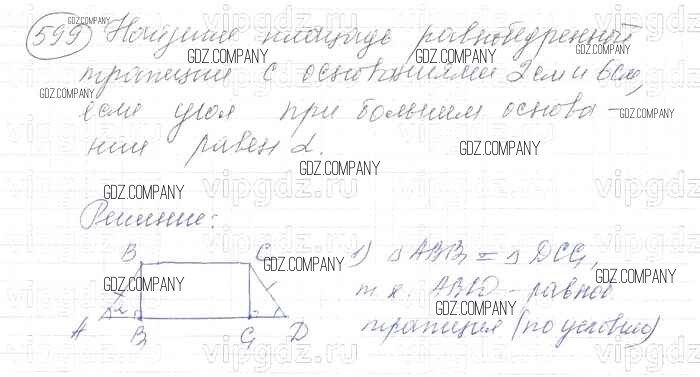 599 Найдите площадь равнобедренной
трапеции с основаниями 2 см и 6 см,
если угол при большем основа-
нии равен α.
Решение:
B C
A B G D
α
1) △ABB = △DCG,
т.к. ABCD - равноб
трапеция (по условию)
GDZ.COMPANY
vipgdz.ru